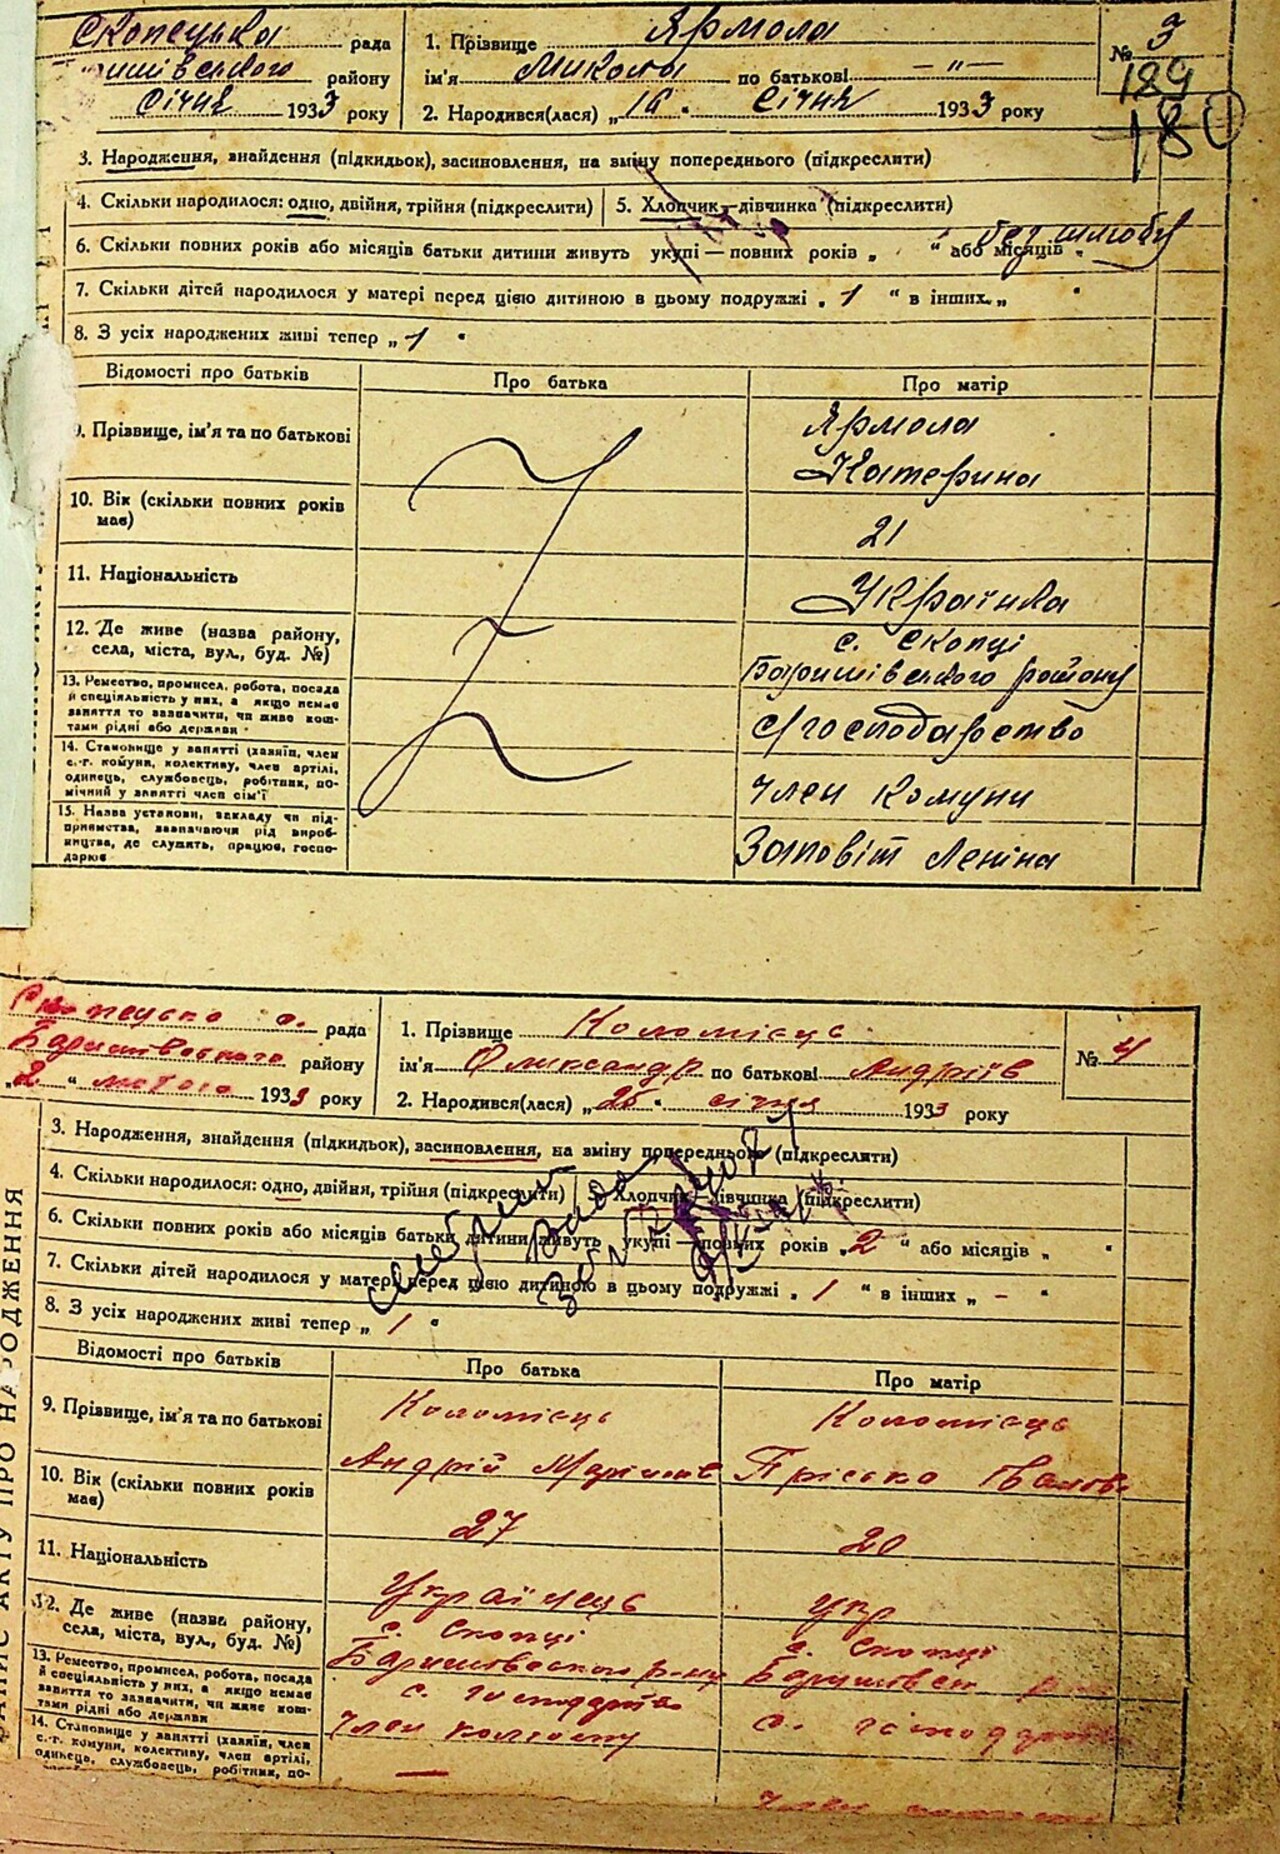 Скопецька рада
району
Січня 1933 року
1. Прізвище Ярмола
ім'я Микола по батькові — " —
2. Народився(лася) „16" Січня 1933 року
№ 3
189
180
3. Народження, знайдення (підкидьок), засиновлення, на зміну попереднього (підкреслити)
4. Скільки народилося: одно, двійня, трійня (підкреслити)
5. Хлопчик—дівчинка (підкреслити)
6. Скільки повних років або місяців батьки дитини живуть укупі — повних років „ " або місяців „ без шлюбу
7. Скільки дітей народилося у матері перед цією дитиною в цьому подружжі „ 1 " в інших „ "
8. З усіх народжених живі тепер „ 1 "
Відомості про батьків
Про батька
Про матір
9. Прізвище, ім'я та по батькові
Ярмола
Катерина
10. Вік (скільки повних років
має)
21
11. Національність
Українка
12. Де живе (назва району,
села, міста, вул., буд. №)
с. Скопці
Баришівського району
13. Ремество, промисел, робота, посада
й спеціяльність у них, а якщо немає
заняття то зазначити, чи живе кош-
тами рідні або держави
с/господарство
14. Становище у занятті (хазяїн, член
с.-г. комуни, колективу, член артілі,
одинець, службовець, робітник, по-
мічний у занятті член сім'ї
Член Комуни
15. Назва установи, закладу чи під-
приємства, зазначаючи рід вироб-
ництва, де служить, працює, госпо-
дарює
Заповіт Леніна
Скопецька с. рада
Баришевського району
„2" лютого 1933 року
1. Прізвище Коломієць
ім'я Олександр по батькові Андріїв
2. Народився(лася) „25" січня 1933 року
№ 4
3. Народження, знайдення (підкидьок), засиновлення, на зміну попереднього (підкреслити)
4. Скільки народилося: одно, двійня, трійня (підкреслити)
5. Хлопчик—дівчинка (підкреслити)
6. Скільки повних років або місяців батьки дитини живуть укупі — повних років „ 2 " або місяців „ "
7. Скільки дітей народилося у матері перед цією дитиною в цьому подружжі „ 1 " в інших „ - "
8. З усіх народжених живі тепер „ 1 "
Відомості про батьків
Про батька
Про матір
9. Прізвище, ім'я та по батькові
Коломієць
Андрій
Коломієць
Пріська
10. Вік (скільки повних років
має)
27
20
11. Національність
Українець
укр
12. Де живе (назва району,
села, міста, вул., буд. №)
с. Скопці
с. Скопці
13. Ремество, промисел, робота, посада
й спеціяльність у них, а якщо немає
заняття то зазначити, чи живе кош-
тами рідні або держави
14. Становище у занятті (хазяїн, член
с.-г. комуни, колективу, член артілі,
одинець, службовець, робітник, по-
член
ЗАПИС АКТУ ПРО НАРОДЖЕННЯ